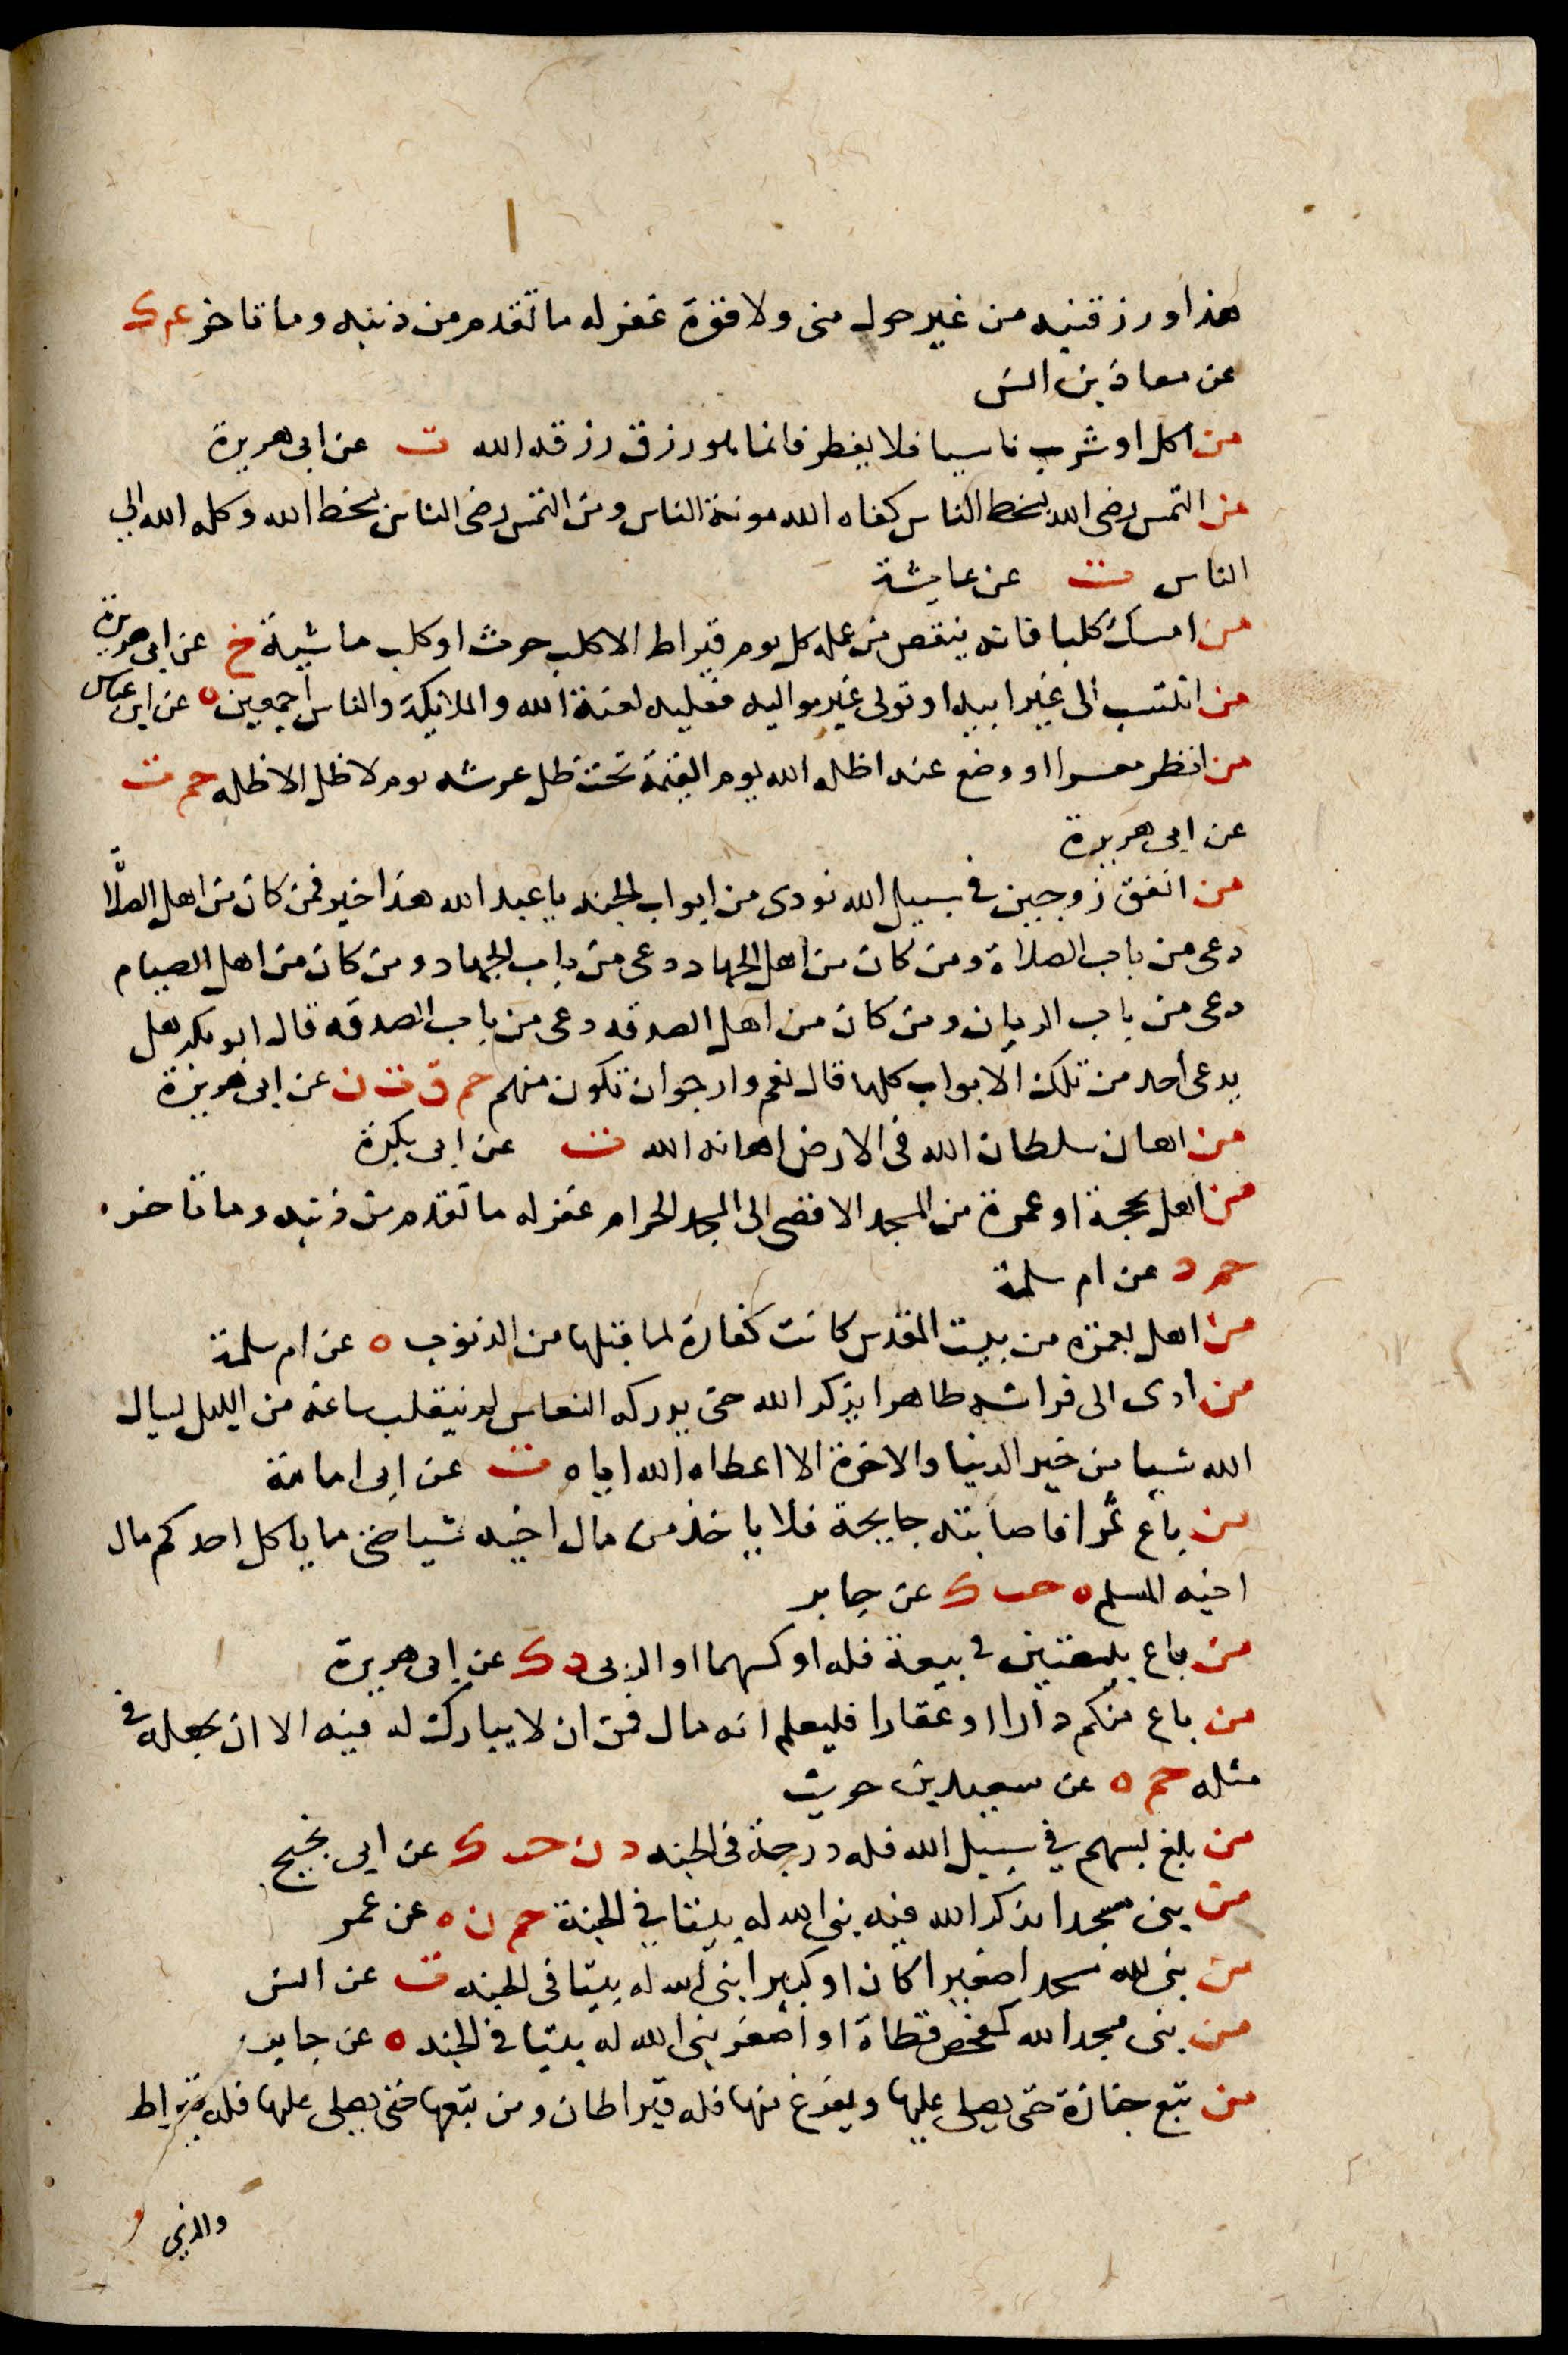 هذا ورزقنيه من غير حول منى ولا قوة غفر له ما تقدم من ذنبه وما تاخر عم ك
عن معاذ بن انس
من اكل او شرب ناسيا فلا يفطر فانما هو رزق رزقه الله ت عن ابى هريرة
من التمس رضى الله بسخط الناس كفاه الله مونة الناس ومن التمس رضى الناس بسخط الله وكله الله الى
الناس ت عن عايشة
من امسك كلبا فانه ينقص من عمله كل يوم قيراط الا كلب حرث او كلب ماشية خ عن ابى هريرة
من انتسب الى غير ابيه او تولى غير مواليه فعليه لعنة الله والملايكة والناس اجمعين ه عن ابن عباس
من انظر معسرا او وضع عنه اظله الله يوم القيمة تحت ظل عرشه يوم لا ظل الا ظله حم ت
عن ابى هريرة
من انفق زوجين فى سبيل الله نودى من ابواب الجنه يا عبد الله هذا خير فمن كان من اهل الصلاة
دعى من باب الصلاة ومن كان من اهل الجهاد دعى من باب الجهاد ومن كان من اهل الصيام
دعى من باب الريان ومن كان من اهل الصدقه دعى من باب الصدقه قال ابو بكر هل
يدعى احد من تلك الابواب كلها قال نعم وارجو ان تكون منهم حم ق ت ن عن ابى هريرة
من اهان سلطان الله فى الارض اهانه الله ت عن ابى بكرة
من اهل بحجة او عمرة من المسجد الاقصى الى المسجد الحرام غفر له ما تقدم من ذنبه وما تاخر
حم د عن ام سلمة
من اهل بعمرة من بيت المقدس كانت كفارة لما قبلها من الذنوب ه عن ام سلمة
من اوى الى فراشه طاهرا يذكر الله حتى يدركه النعاس لم ينقلب ساعة من الليل يسال
الله شيا من خير الدنيا والاخرة الا اعطاه الله اياه ت عن ابى امامة
من باع ثمرا فاصابته جايحة فلا ياخذ من مال اخيه شيا ما ياكل احدكم مال
اخيه المسلم ه حب ك عن جابر
من باع بيعتين فى بيعة فله اوكسهما او الربى د ك عن ابى هريرة
من باع منكم دارا او عقارا فليعلم انه مال قمن ان لا يبارك له فيه الا ان يجعله فى
مثله حم ه عن سعيد بن حريث
من بلغ بسهم فى سبيل الله فله درجة فى الجنه د ن حب ك عن ابى نجيح
من بنى مسجدا يذكر الله فيه بنى الله له بيتا فى الجنة حم ن ه عن عمر
من بنى لله مسجدا صغيرا كان او كبيرا بنى الله له بيتا فى الجنه ت عن انس
من بنى مسجدا لله كمفحص قطاة او اصغر بنى الله له بيتا فى الجنه ه عن جابر
من تبع جنازة حتى يصلى عليها ويفرغ منها فله قيراطان ومن تبعها حتى يصلى عليها فله قيراط
والذى